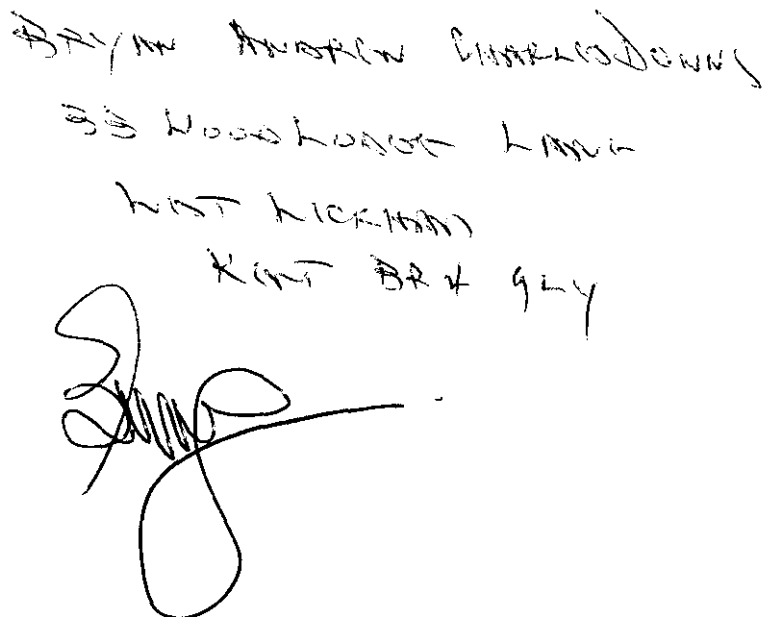 BRYAN ANDREW CHARLES DOWNS
33 WOOD LODGE LANE
WEST WICKHAM
KENT BR4 9LY